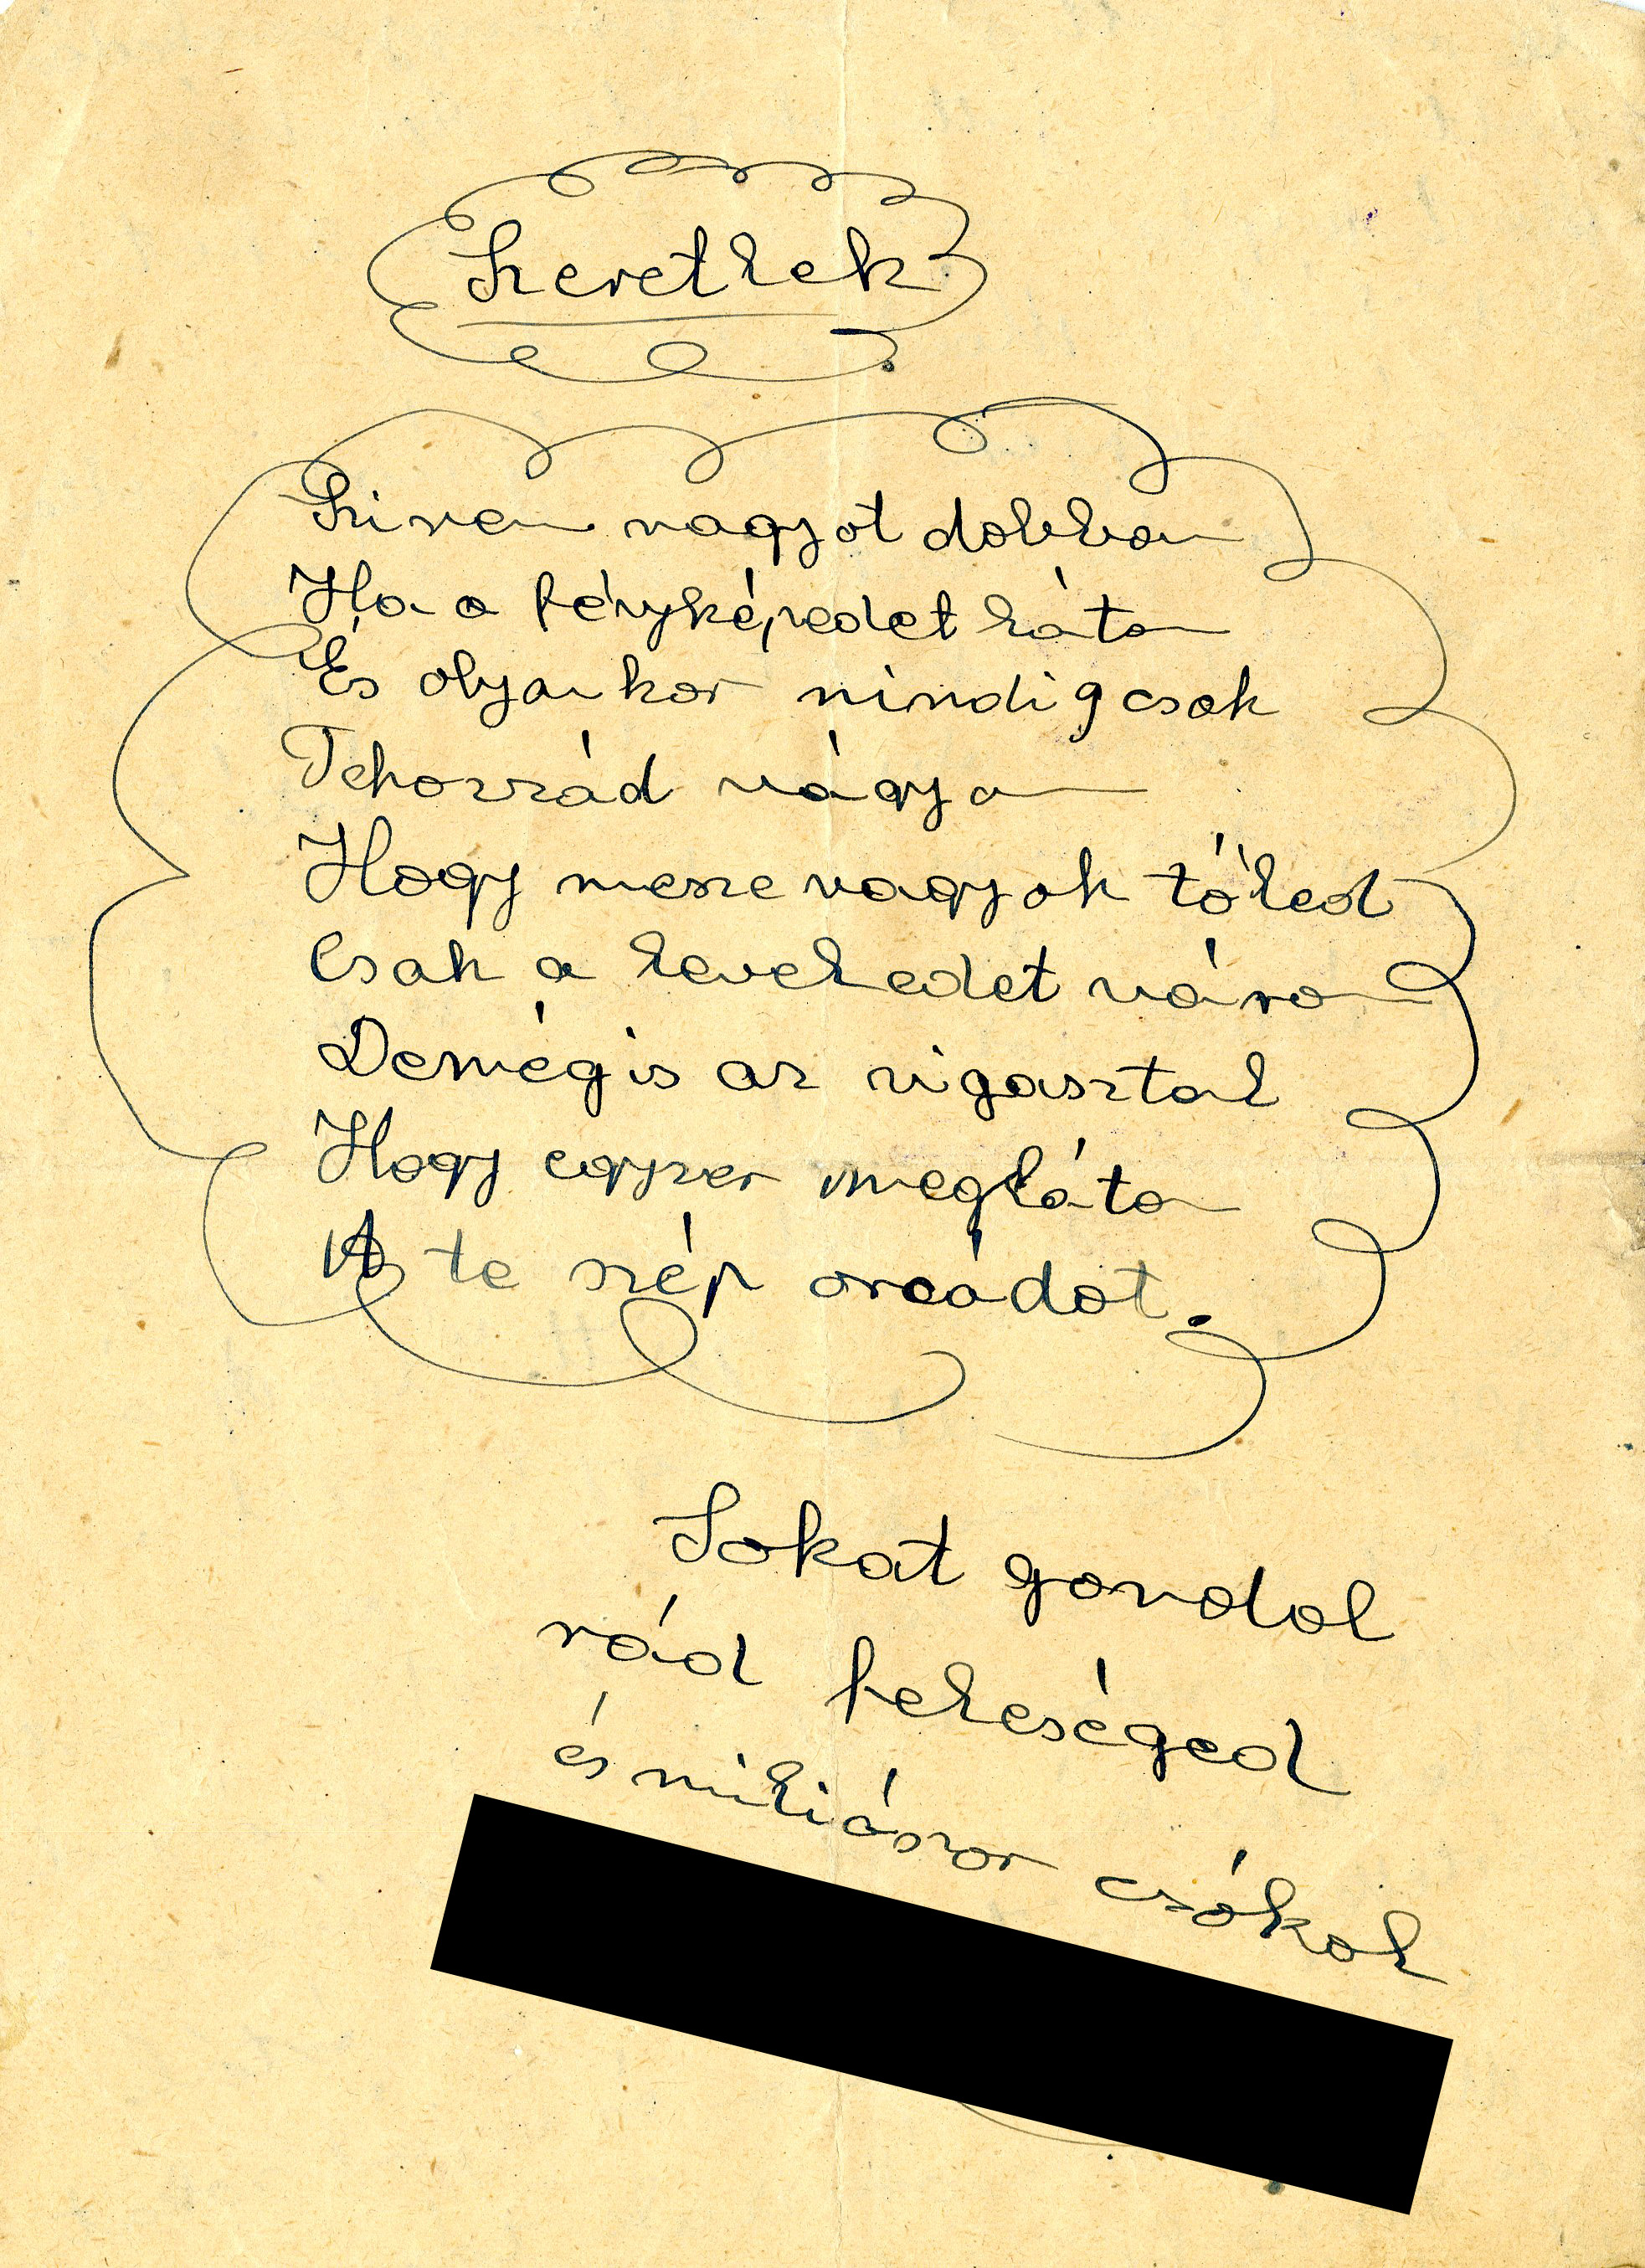 Szeretlek
Szivem nagyot dobban
Ha a fényképedet látom
És olyankor mindig csak
Tehozzád vágyom
Hogy messze vagyok tőled
Csak a leveledet várom
Demégis az vigasztal
Hogy egyszer meglátom
A te szép orcádat.
Sokat gondol
rád feleséged
és miliószor csókol